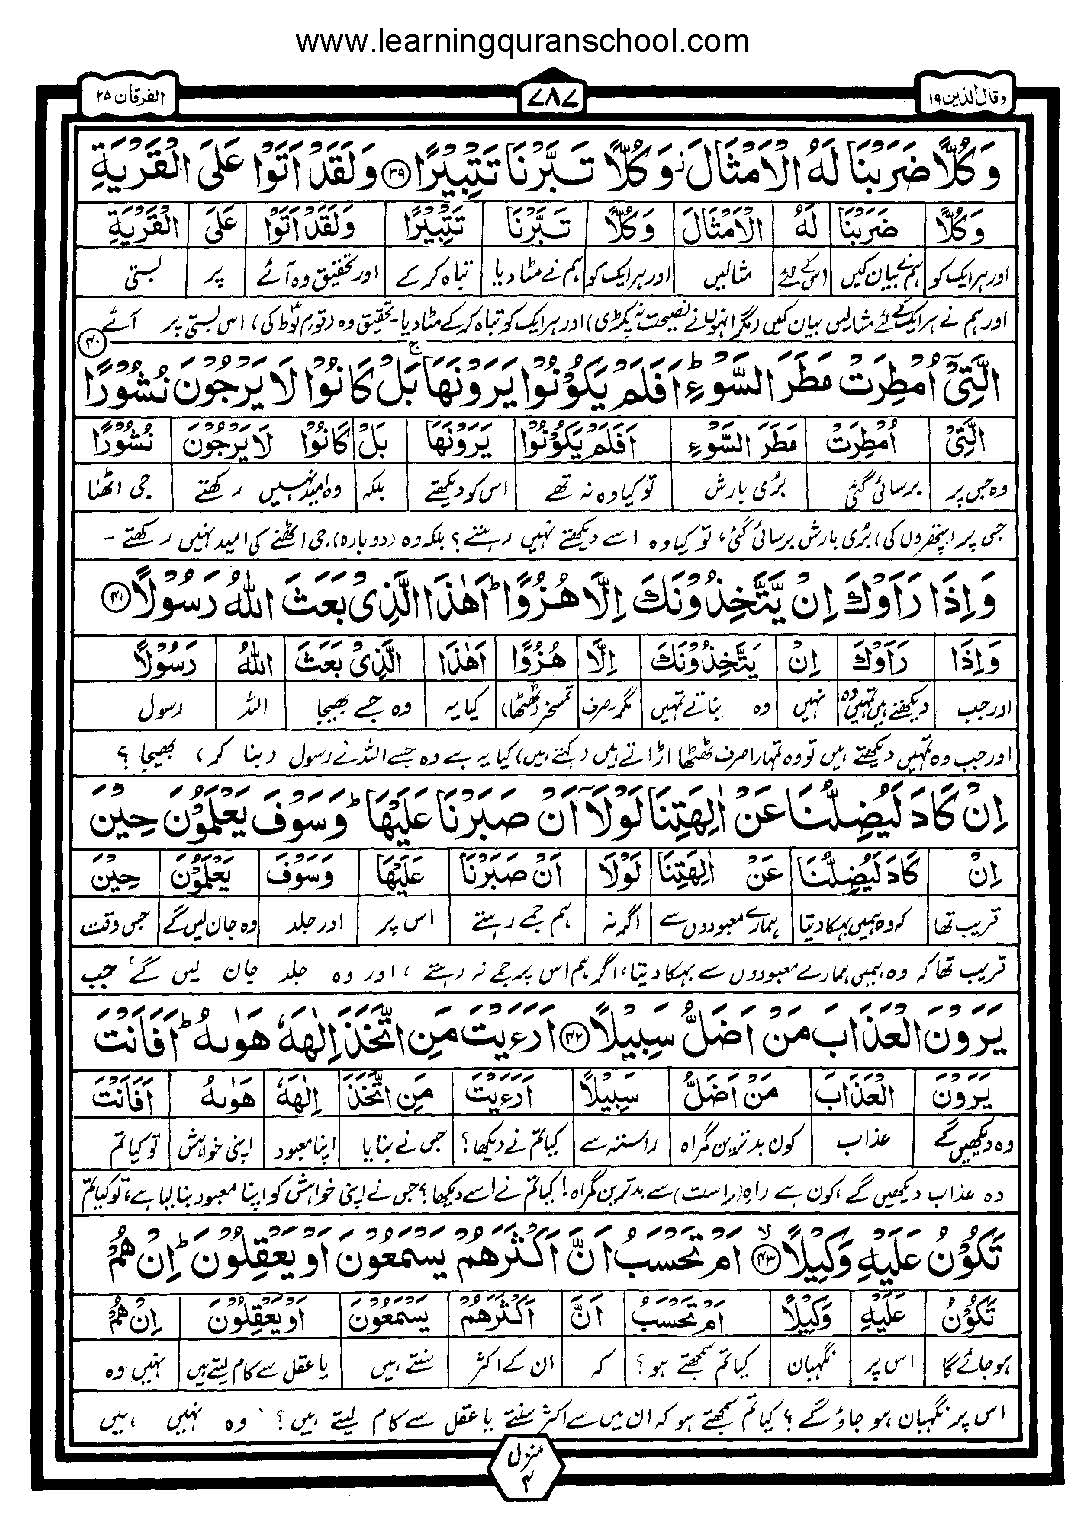 www.learningquranschool.com
وقال الذين ۱۹
۷۸۷
الفرقان ۲۵
وَكُلًّا ضَرَبْنَا لَهُ الْاَمْثَالَ ۫ وَكُلًّا تَبَّرْنَا تَتْبِيْرًا ﴿۳۹﴾ وَلَقَدْ اَتَوْا عَلَى الْقَرْيَةِ
وَكُلًّا ضَرَبْنَا لَهُ الْاَمْثَالَ وَكُلًّا تَبَّرْنَا تَتْبِيْرًا وَلَقَدْ اَتَوْا عَلَى الْقَرْيَةِ
اور ہر ایک کو ہم نے بیان کیں اس کے لئے مثالیں اور ہر ایک کو ہم نے مٹا دیا تباہ کر کے اور تحقیق وہ آئے پر بستی
اور ہم نے ہر ایک کے لئے مثالیں بیان کیں (مگر انہوں نے نصیحت نہ پکڑی) اور ہر ایک کو تباہ کر کے مٹا دیا - تحقیق وہ (قوم لوط کی) اس بستی پر آئے
الَّتِيْٓ اُمْطِرَتْ مَطَرَ السَّوْءِ ؕ اَفَلَمْ يَكُوْنُوْا يَرَوْنَهَا ۚ بَلْ كَانُوْا لَا يَرْجُوْنَ نُشُوْرًا ﴿۴۰﴾
الَّتِيْ اُمْطِرَتْ مَطَرَ السَّوْءِ اَفَلَمْ يَكُوْنُوْا يَرَوْنَهَا بَلْ كَانُوْا لَا يَرْجُوْنَ نُشُوْرًا
وہ جس پر برسائی گئی بری بارش تو کیا وہ نہ تھے اس کو دیکھتے بلکہ وہ امید نہیں رکھتے جی اٹھنا
جس پر (پتھروں کی) بری بارش برسائی گئی، تو کیا وہ اسے دیکھتے نہیں رہتے؟ بلکہ وہ (دوبارہ) جی اٹھنے کی امید نہیں رکھتے -
وَاِذَا رَاَوْكَ اِنْ يَّتَّخِذُوْنَكَ اِلَّا هُزُوًا ؕ اَهٰذَا الَّذِيْ بَعَثَ اللّٰهُ رَسُوْلًا ﴿۴۱﴾
وَاِذَا رَاَوْكَ اِنْ يَتَّخِذُوْنَكَ اِلَّا هُزُوًا اَهٰذَا الَّذِيْ بَعَثَ اللّٰهُ رَسُوْلًا
اور جب دیکھتے ہیں تمہیں وہ نہیں وہ بناتے تمہیں مگر صرف تمسخر (ٹھٹھا) کیا یہ وہ جسے بھیجا اللہ رسول
اور جب وہ تمہیں دیکھتے ہیں تو وہ تمہارا صرف ٹھٹھا اڑاتے ہیں (کہتے ہیں) کیا یہ ہے وہ جسے اللہ نے رسول (بنا کر) بھیجا؟
اِنْ كَادَ لَيُضِلُّنَا عَنْ اٰلِهَتِنَا لَوْلَآ اَنْ صَبَرْنَا عَلَيْهَا ؕ وَسَوْفَ يَعْلَمُوْنَ حِيْنَ
اِنْ كَادَ لَيُضِلُّنَا عَنْ اٰلِهَتِنَا لَوْلَا اَنْ صَبَرْنَا عَلَيْهَا وَسَوْفَ يَعْلَمُوْنَ حِيْنَ
قریب تھا کہ وہ ہمیں بہکا دیتا ہمارے معبودوں سے اگر نہ ہم جمے رہتے اس پر اور جلد وہ جان لیں گے جس وقت
قریب تھا کہ وہ ہمیں ہمارے معبودوں سے بہکا دیتا، اگر ہم اس پر جمے نہ رہتے، اور وہ جلد جان لیں گے، جب
يَرَوْنَ الْعَذَابَ مَنْ اَضَلُّ سَبِيْلًا ﴿۴۲﴾ اَرَءَيْتَ مَنِ اتَّخَذَ اِلٰهَهٗ هَوٰىهُ ؕ اَفَاَنْتَ
يَرَوْنَ الْعَذَابَ مَنْ اَضَلُّ سَبِيْلًا اَرَءَيْتَ مَنِ اتَّخَذَ اِلٰهَهٗ هَوٰىهُ اَفَاَنْتَ
وہ دیکھیں گے عذاب کون بدترین گمراہ راستہ سے کیا تم نے دیکھا؟ جس نے بنایا اپنا معبود اپنی خواہش تو کیا تم
وہ عذاب دیکھیں گے، کون ہے راہِ (راست) سے بدترین گمراہ! کیا تم نے اسے دیکھا؟ جس نے اپنی خواہش کو اپنا معبود بنا لیا ہے، تو کیا تم
تَكُوْنُ عَلَيْهِ وَكِيْلًا ﴿۴۳﴾ اَمْ تَحْسَبُ اَنَّ اَكْثَرَهُمْ يَسْمَعُوْنَ اَوْ يَعْقِلُوْنَ ؕ اِنْ هُمْ
تَكُوْنُ عَلَيْهِ وَكِيْلًا اَمْ تَحْسَبُ اَنَّ اَكْثَرَهُمْ يَسْمَعُوْنَ اَوْ يَعْقِلُوْنَ اِنْ هُمْ
ہو جائے گا اس پر نگہبان کیا تم سمجھتے ہو؟ کہ ان کے اکثر سنتے ہیں یا عقل سے کام لیتے ہیں نہیں وہ
اس پر نگہبان ہو جاؤ گے؟ کیا تم سمجھتے ہو کہ ان میں سے اکثر سنتے یا عقل سے کام لیتے ہیں؟ وہ نہیں ہیں
منزل ۴